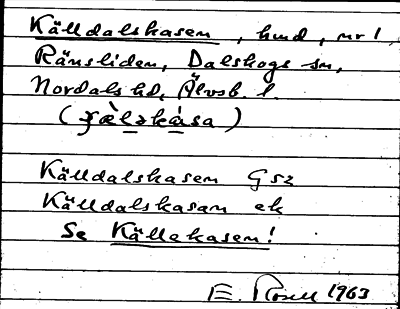 Källdalskasen, hmd, nr 1,
Ränsliden, Dalskogs sn,
Nordals hd, Älvsb. l.
Källdalskasen Gsz
Källdalskasan ek
Se Källekasen!
E. Rosell 1963